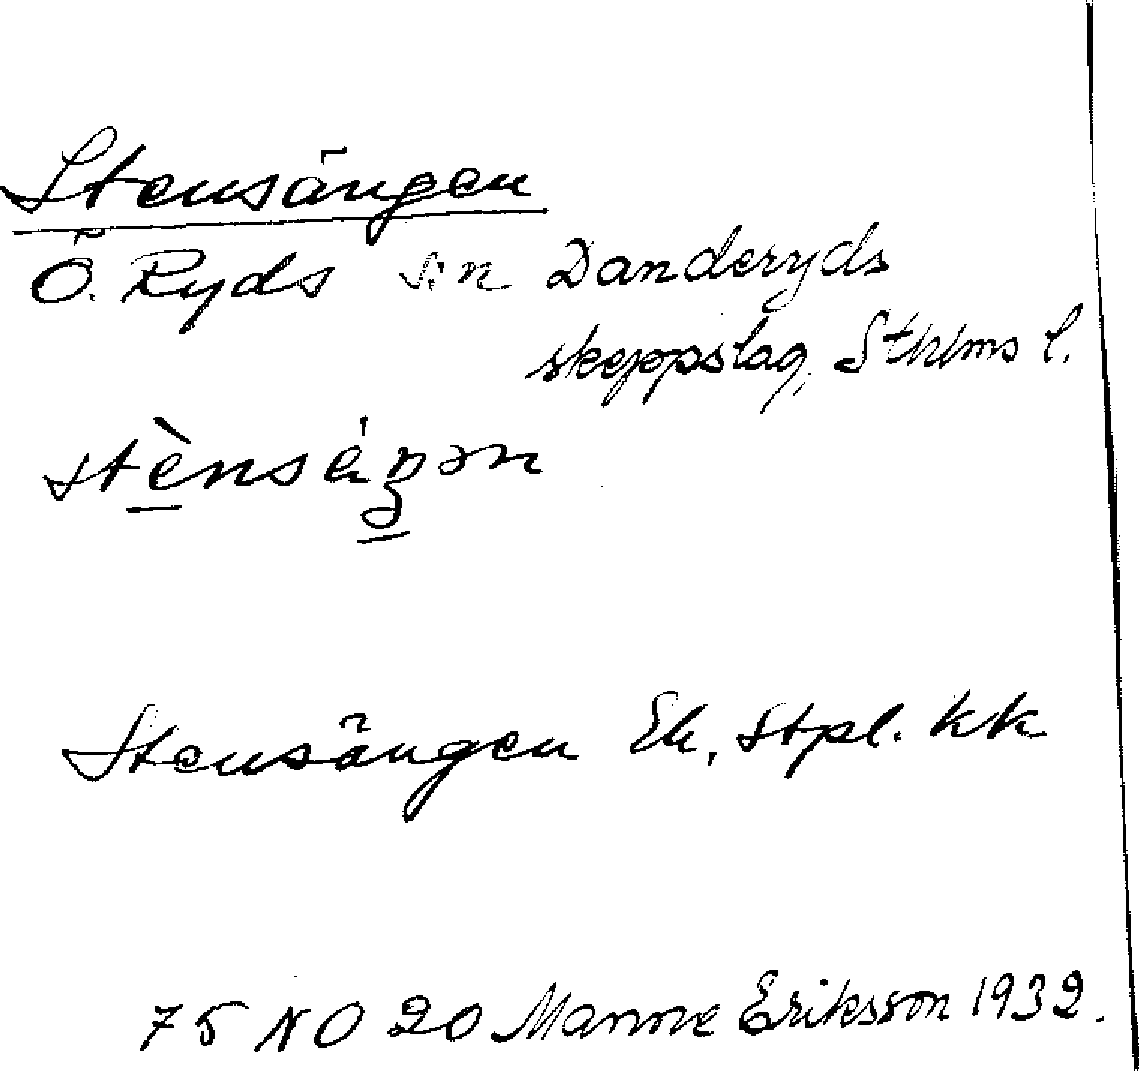 Stensängen
Ö. Ryds s:n Danderyds
skeppslag, Sthlms l.
stènsáŋən
Stensängen Ek, Stpl. kk
75 NO 20 Manne Eriksson 1932.